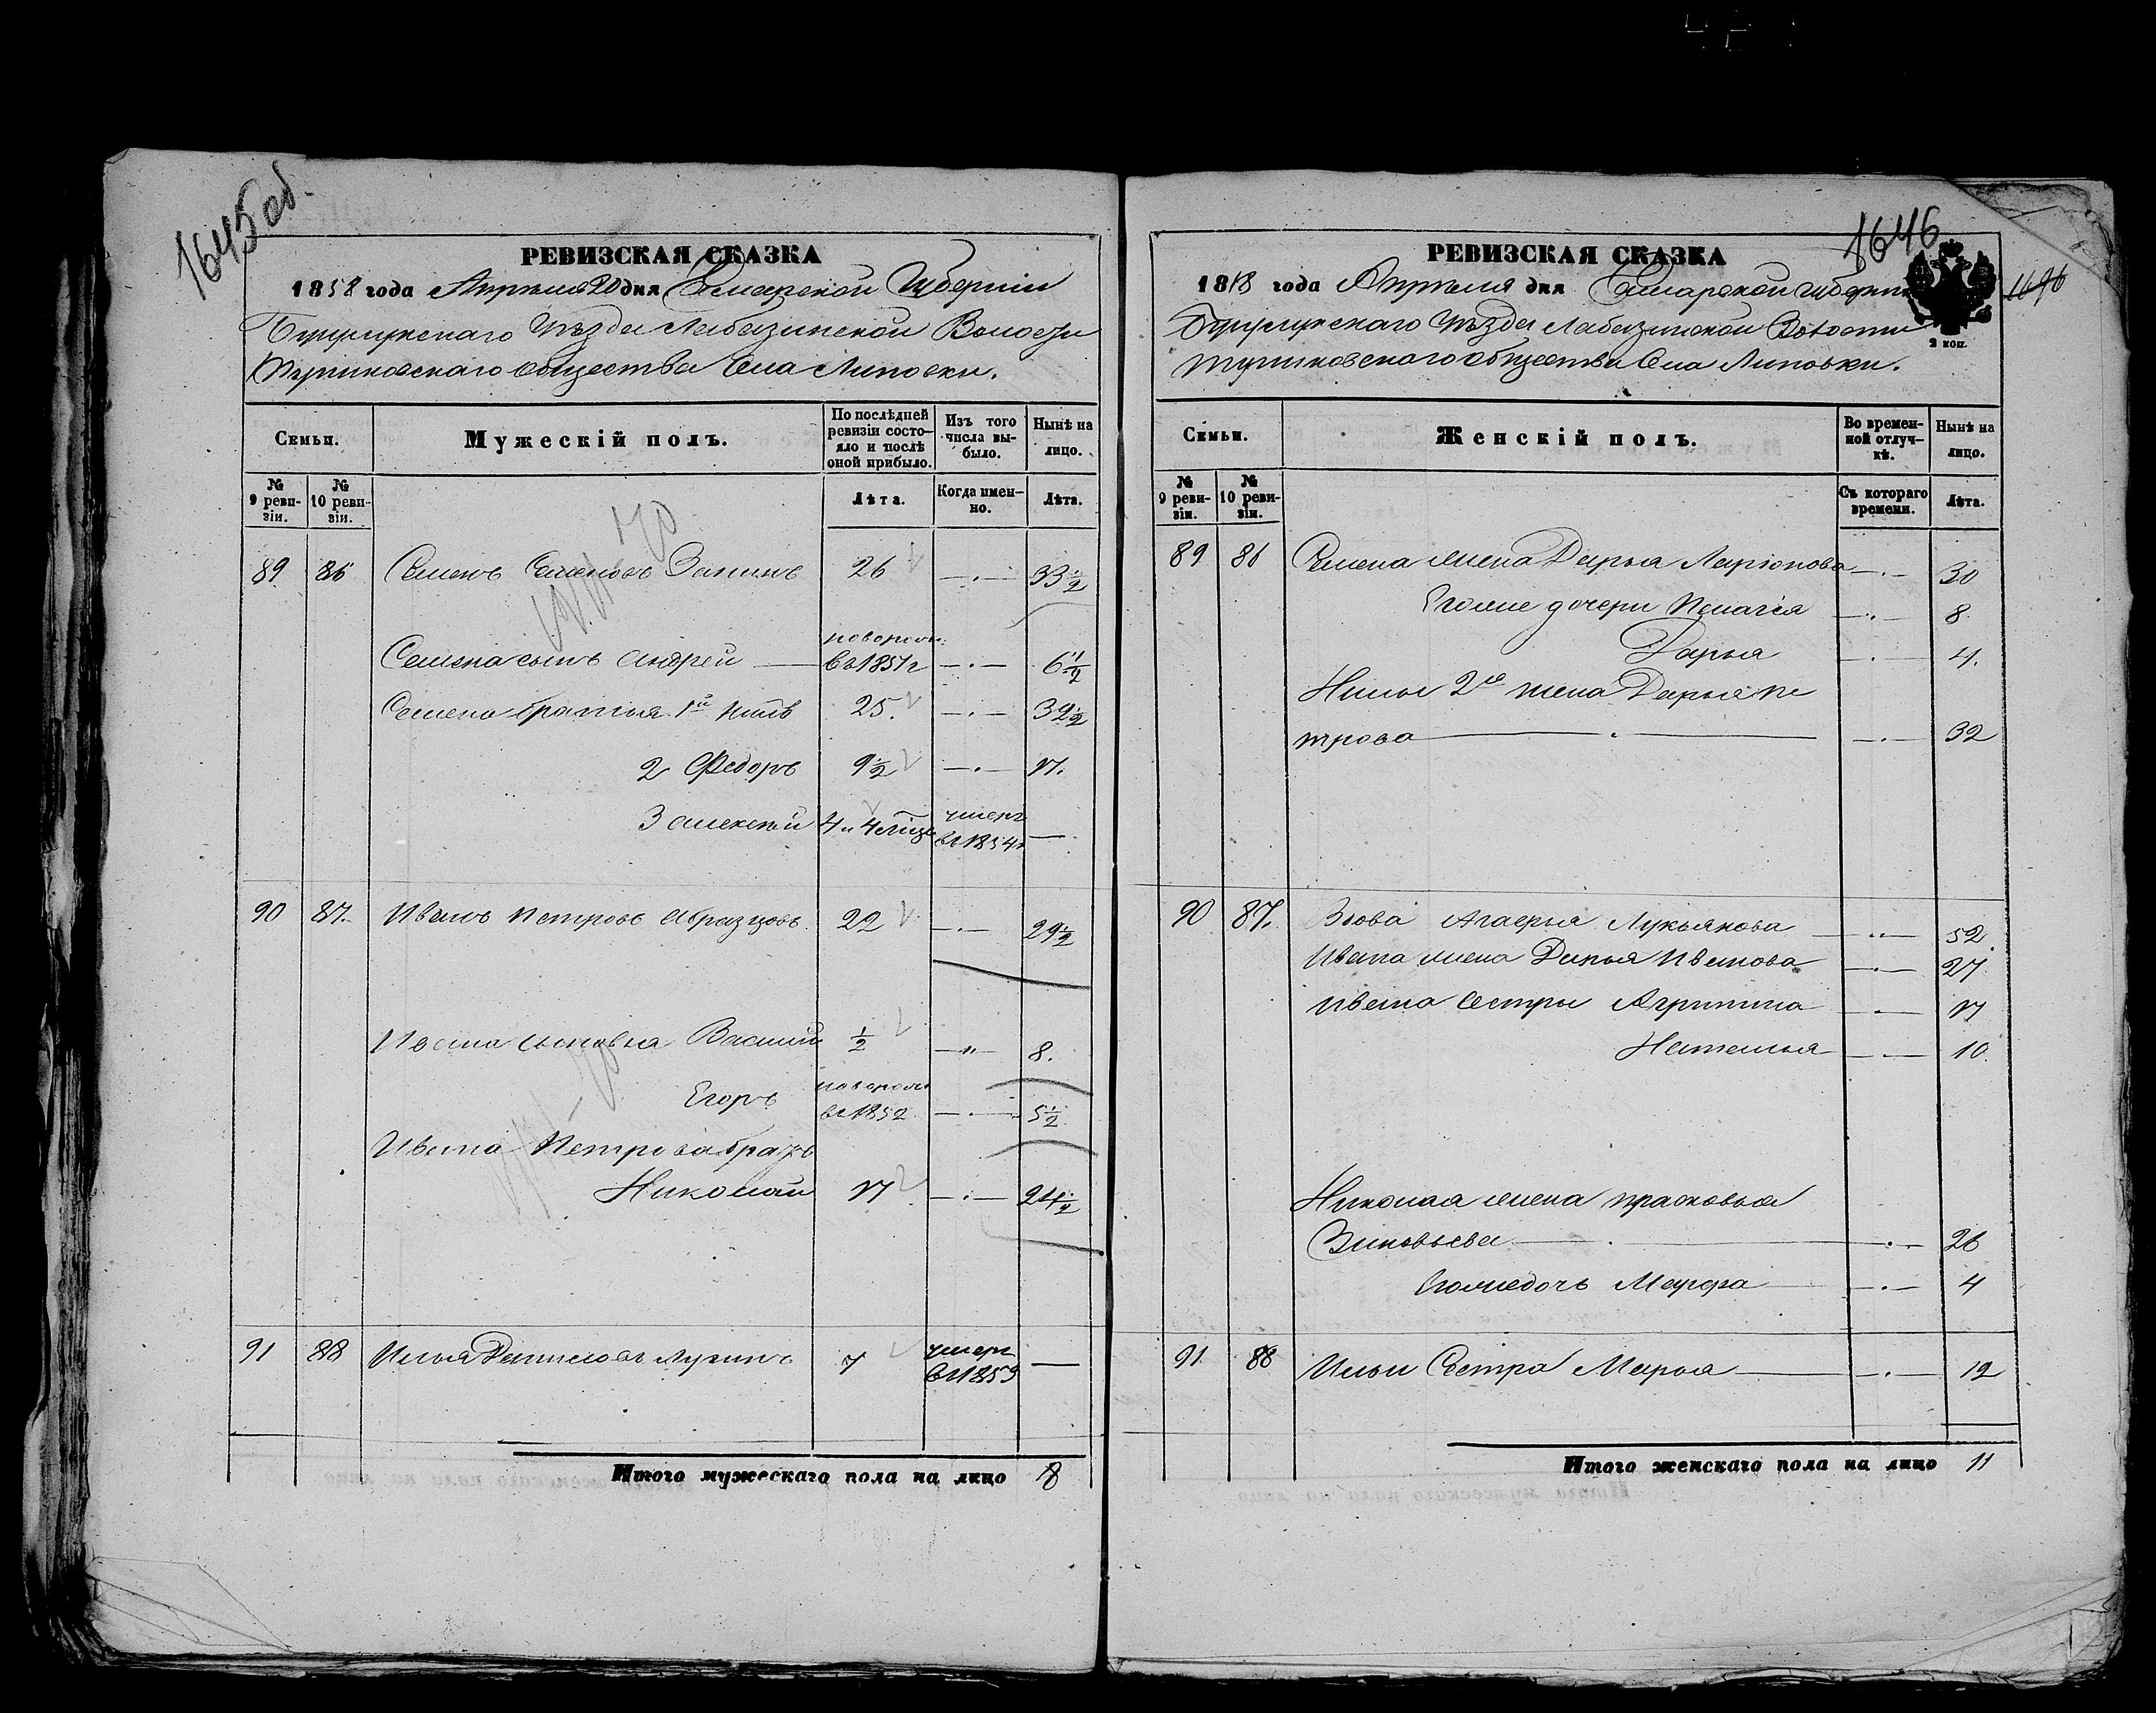 1645 об.
РЕВИЗСКАЯ СКАЗКА
1858 года Апреля 20 дня Самарской Губернии
Бузулукскаго Уезда Лабазинской Волости
общества Села Липовки.
Семьи.
Мужескій полъ.
По послѣдней ревизіи состояло и послѣ оной прибыло.
Изъ того числа выбыло.
Нынѣ на лицо.
№ 9 ревизіи.
№ 10 ревизіи.
Лѣта.
Когда именно.
Лѣта.
89 86 Семенъ Семеновъ 26 —·— 33½
Семена сынъ Андрей — новорож. въ 1851 г —·— 6½
Семена братья 1й 25. —·— 32½
2 Федоръ 9½ —·— 17.
3 Алексей 4 и 4 месяц умеръ въ 1854 г —
90 87. Иванъ Петровъ Абразцовъ. 22 —·— 29½
Ивана сыновья Василий ½ —"— 8.
Егоръ новорож въ 1852 —·— 5½
Ивана Петрова братъ
Николай 17 —·— 24½
91 88 Илья Данилов 7 умеръ въ 1853 —
Итого мужескаго пола на лицо 8
1646
1696
РЕВИЗСКАЯ СКАЗКА
1858 года Апреля дня Самарской губернии
Бузулукскаго Уезда Лабазинской Волости
общества Села Липовки.
2 коп.
Семьи.
Женскій полъ.
Во временной отлучкѣ.
Нынѣ на лицо.
№ 9 ревизіи.
№ 10 ревизіи.
Съ котораго времени.
Лѣта.
89 86 Семена жена Дарья Ларіонова —·— 30
Егоже дочери Пелагея —·— 8.
Дарья —·— 4.
2я жена Дарья Пе
трова —·— 32
90 87. Вдова Агафья Лукьянова —··— 52.
Ивана жена Дарья Иванова —·— 27
Ивана Сестры Агрипина —·— 17
Наталья —·— 10.
Николая жена Прасковья
Зиновьева —·— 26
Егожедочь Марфа —·— 4
91 88 Ильи Сестра Марья —·— 12
Итого женскаго пола на лицо 11